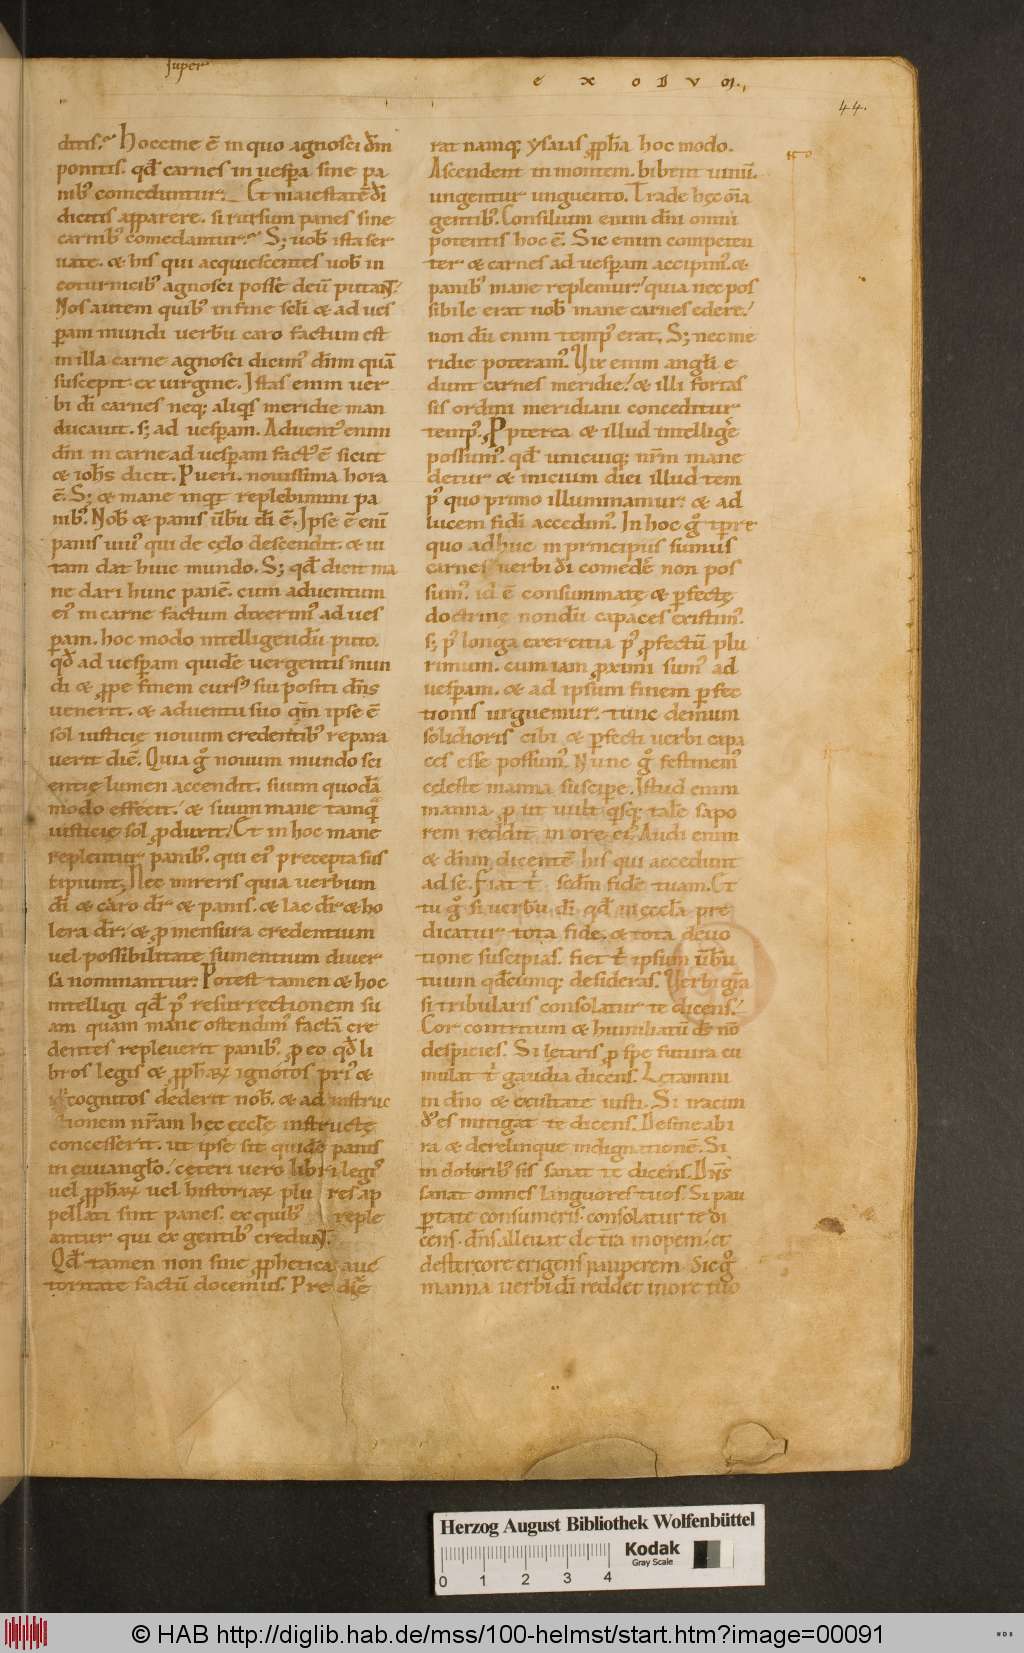 super
EXODVM.
44.
ditis. Hoccine ē in quo agnosci dn̄m
ponitis. qd̄ carnes in uesp̄a sine pa
nib; comeduntur. Et maiestatē dī
dicitis apparere. si rursum panes sine
carnib; comedantur. S; uob̄ ista ser
uate. & his qui acquiescentes uob̄ in
coturnicib; agnosci posse deū putaNT.
Nos autem quib; in fine sc̄li & ad ues
p̄am mundi uerbū caro factum est
in illa carne agnosci dicim; dn̄m quā
suscepit ex uirgine. Istas enim uer
bi dī carnes neq; aliq̄s meridie man
ducauit. s; ad uesp̄am. Aduent; enim
dn̄i in carne ad uesp̄am fact; ē sicut
& ioh̄s dicit. Pueri. nouissima hora
ē. S; & mane inqt replebimini pa
nib;. Nob̄ & panis ūbū dī ē. Ipse ē eni
panis uiu; qui de cęlo descendit. & ui
tam dat huic mundo. S; qd̄ dicit ma
ne dari hunc panē. cum aduentum
ei; in carne factum dixerim; ad ues
p̄am. hoc modo intelligendū puto.
qd̄ ad uesp̄am quidē uergentis mun
di & p̄pe finem curs; sui positi dn̄s
uenerit. & aduentu suo qm̄ ipse ē
sol iusticię nouum credentib; repara
uerit diē. Quia g̊ nouum mundo sci
entię lumen accendit. suum quodā
modo effecit. & suum mane tamq̄
iusticię sol p̄duxit. Et in hoc mane
replentur panib;. qui ei; precepta sus
cipiunt. Nec mireris quia uerbum
dī & caro dr̄ & panis. & lac dr̄ & ho
lera dr̄. & p mensura credentium
uel possibilitate sumentium diuer
sa nominantur. Potest tamen & hoc
intelligi qd̄ p; resurrectionem su
am quam mane ostendim; factā cre
dentes repleuerit panib;. p eo qd̄ li
bros legis & p̄phax ignotos pri; &
cognitos dederit nob̄. & ad instruc
tionem nr̄am hec eccl̄e instructę
concesserit. ut ipse sit quidē panis
in euuanglō. ceteri uero libri legi;
uel p̄phax uel historiax plu res ap
pellati sint panes. ex quib; reple
antur qui ex gentib; creduNT.
Qd̄ tamen non sine p̄phetica auc
toritate factū docemus. Pre dixe
rat namq; ysaias p̄pha hoc modo.
Ascendent in montem. bibent uinū.
ungentur unguento. Trade hęc oīa
gentib;. Consilium enim dn̄i omni
potentis hoc ē. Sic enim competen
ter & carnes ad uesp̄am accipim; &
panib; mane replemur. quia nec pos
sibile erat nob̄ mane carnes edere.
non dū enim temp; erat. S; nec me
ridie poteram;. Vix enim angli e
dunt carnes meridie. & illi fortas
sis ordini meridiani conceditur
temp;. Ppterea & illud intelligē
possum;. qd̄ unicuiq; nr̄m mane
detur & inicium diei illud tem
p; quo primo illuminamur. & ad
lucem fidei accedim;. In hoc g̊ tp̄re
quo adhuc in principiis sumus
carnes uerbi dī comedē non pos
sum;. id ē consummatę & p̄fectę
doctrinę nondū capaces existim;.
s; p; longa exercitia p; p̄fectū plu
rimum. cum iam p̄ximi sum; ad
uesp̄am. & ad ipsum finem p̄fec
tionis urguemur. tunc demum
solidioris cibi & p̄fecti uerbi capa
ces esse possum;. Nunc g̊ festinem;
cęleste manna suscipe. Istud enim
manna p ut uult q̄sq; tale sapo
rem reddit in ore ei;. Audi enim
& dn̄m dicentē his qui accedunt
ad se. Fiat t̄ scdm fidē tuam. Et
tu g̊ si uerbū dī qd̄ in eccla pre
dicatur tota fide. & tota deuo
tione suscipias. fiet t̄ ipsum ūbū
tuum qd̄cumq; desideras. Verbi gr̄a
si tribularis consolatur te dicens.
Cor contritum & humiliatū ds̄ nō
despicies. Si lętaris p spe futura cu
mulat t̄ gaudia dicens. Lętamini
in dn̄o & exultate iusti. Si iracun
d; es mitigat te dicens. Desine ab i
ra & derelinque indignationē. Si
in dolorib; sis sanat te dicens. Dn̄s
sanat omnes languores tuos. Si pau
p̄tate consumeris. consolatur te di
cens. dn̄s alleuat de tr̄a inopem. et
de stercore erigens pauperem. Sic g̊
manna uerbi dī reddet in ore tuo
Herzog August Bibliothek Wolfenbüttel
Kodak
Gray Scale
0 1 2 3 4
© HAB http://diglib.hab.de/mss/100-helmst/start.htm?image=00091
HAB